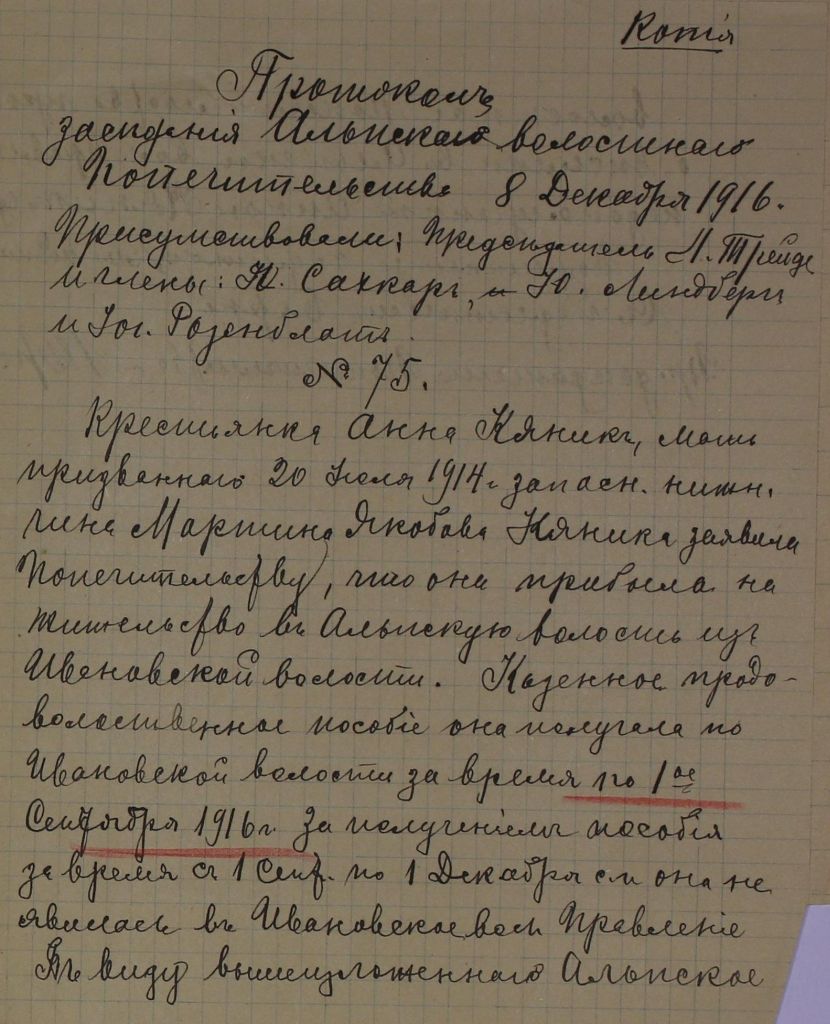 Копія
Протоколъ
засѣданія Альпскаго волостнаго
Попечительства 8 Декабря 1916.
Присутствовали: Предсѣдатель Л. Трейде
и члены: К. Саккаръ, и Ю. Линдбергъ
и Іог. Розенблатъ.
№ 75.
Крестьянка Анна Кяникъ, мать
призваннаго 20 Іюля 1914 г. запасн. нижн.
чина Мартина Якобова Кяника заявила
Попечительству, что она прибыла на
жительство въ Альпскую волость изъ
Ивановской волости. Казенное продо-
вольственное пособіе она получала по
Ивановской волости за время по 1ое
Сентября 1916 г. За полученіемъ пособія
за время съ 1 Сент. по 1 Декабря с.г. она не
явилась въ Ивановское вол. Правленіе
Въ виду вышеизложеннаго Альпское